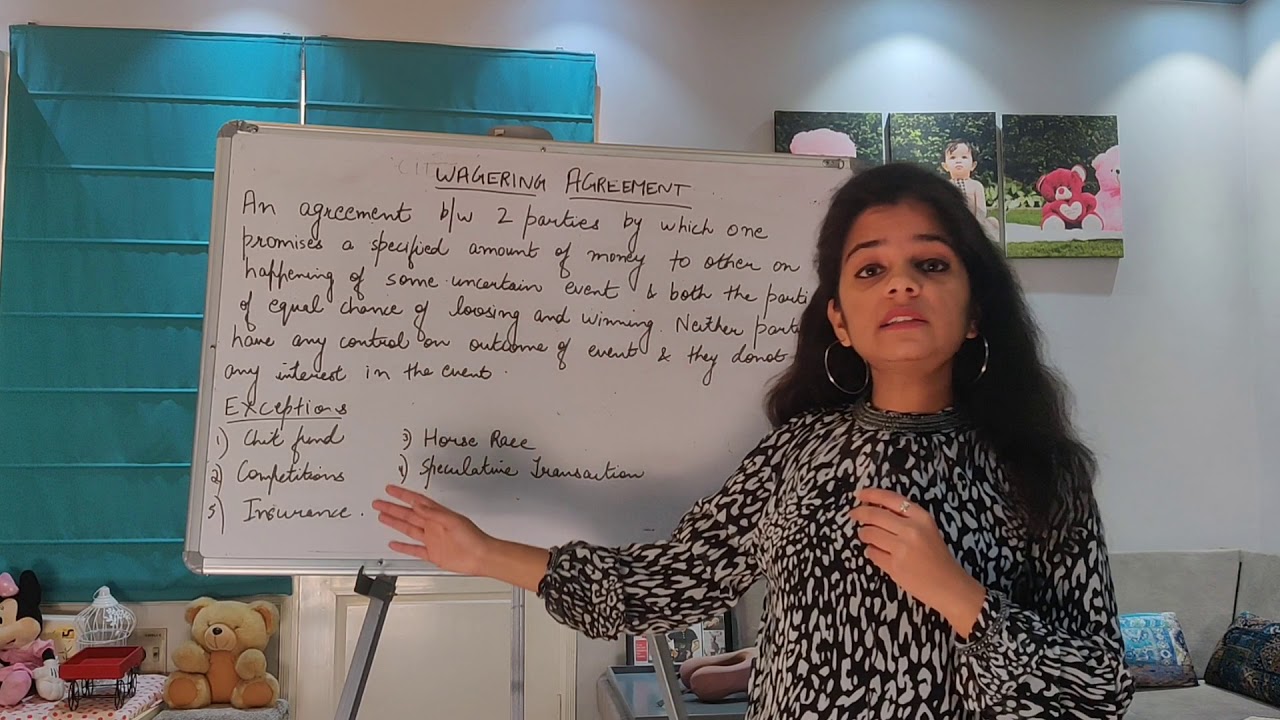 WAGERING AGREEMENT
An agreement b/w 2 parties by which one
promises a specified amount of money to other on
happening of some uncertain event & both the parti
of equal chance of loosing and winning. Neither part
have any control on outcome of event & they donot
any interest in the event.
Exceptions
1) Chit fund
2) Competitions
5) Insurance.
3) Horse Race
4) Speculative Transaction